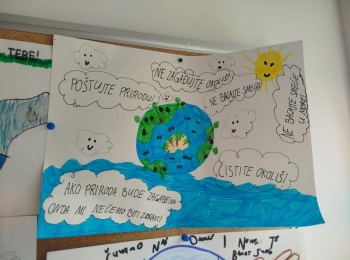 TEBE!
POŠTUJTE PRIRODU!
NE ZAGAĐUJTE OKOLIŠ!
NE BACAJTE SMEĆE!
NE BACAJTE SMEĆE
U MORE!
ČISTITE OKOLIŠ!
AKO PRIRODA BUDE ZAGAĐENA
ONDA MI NEĆEMO BITI ZDRAVI!